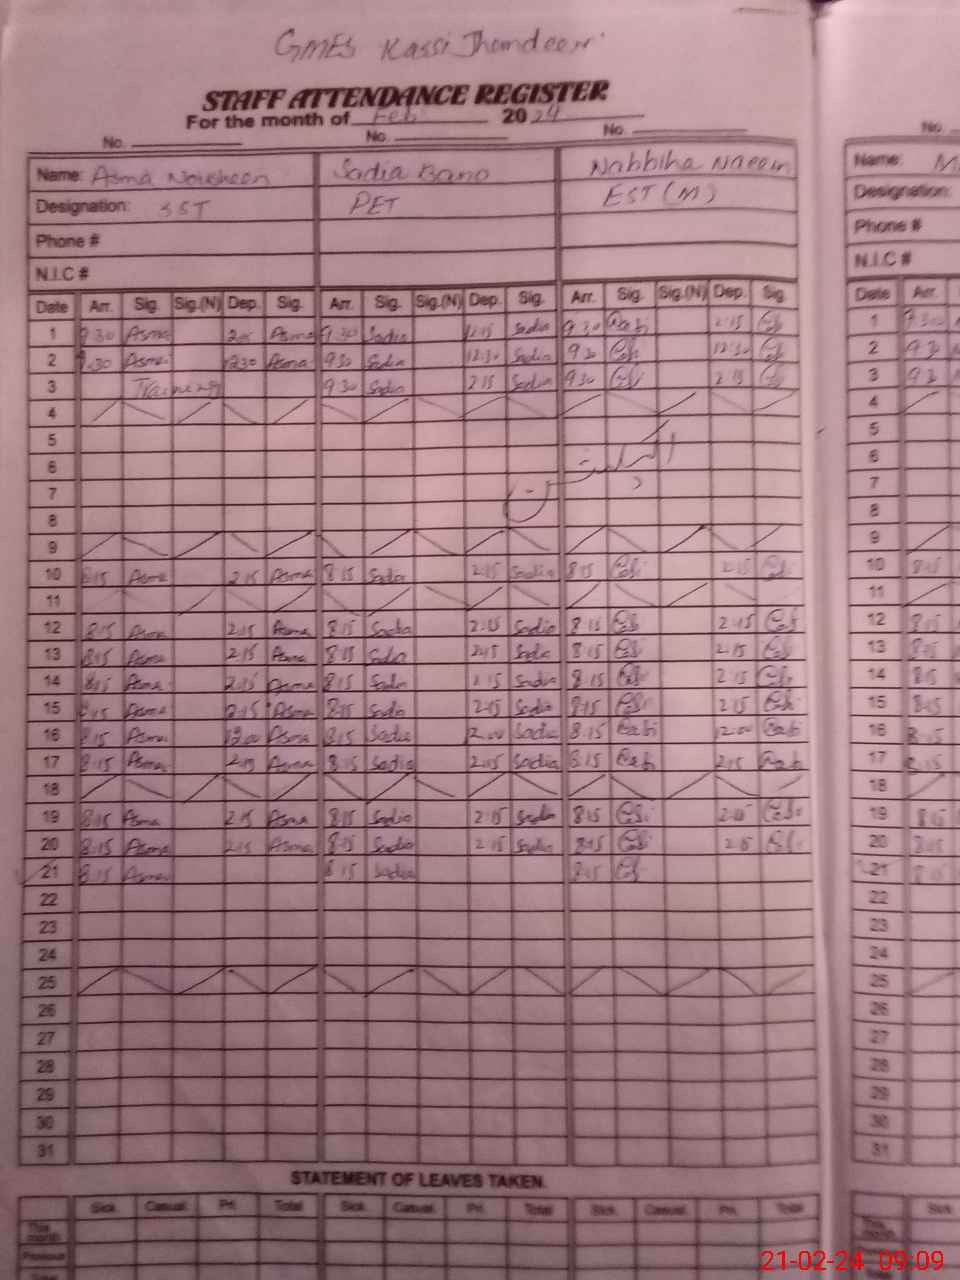 GMES Kassi Jhandeer
STAFF ATTENDANCE REGISTER
For the month of Feb 2024
No. No. No. No.
Name: Asma Nousheen Sadia Bano Nabbiha Naeem Name: M
Designation: SST PET EST (M) Designation:
Phone # Phone #
N.I.C # N.I.C #
Date Arr. Sig. Sig.(N) Dep. Sig. Arr. Sig. Sig.(N) Dep. Sig. Arr. Sig. Sig.(N) Dep. Sig. Date Arr.
1 9.30 Asma Asma 9.30 Sadia 2.15 Sadia 9.30 2.15 1 9.30
2 9.30 Asma 12.30 Asma 930 Sadia 12.30 Sadia 9 30 12.30 2 9 30
3 Training 930 Sadia 2 15 Sadia 930 2 15 3 93
4 4
5 5
6 6
7 7
8 8
9 9
10 8.15 Asma 2.15 Asma 8 15 Sadia 2.15 Sadia 8.15 2.15 10 8.15
11 11
12 8.15 Asma 2.15 Asma 8.15 Sadia 2.15 Sadia 8.15 2.15 12 8.15
13 8.15 Asma 2.15 Asma 8.15 Sadia 2.15 Sadia 8.15 2.15 13 8.15
14 8.15 Asma 2.15 Asma 8.15 Sadia 2.15 Sadia 8.15 2.15 14 8.15
15 8.15 Asma 2.15 Asma 8.15 Sadia 2.15 Sadia 8.15 2.15 15 8.15
16 8.15 Asma 12.00 Asma 8.15 Sadia 12.00 Sadia 8.15 12.00 16 8.15
17 8.15 Asma 2.15 Asma 8.15 Sadia 2.15 Sadia 8.15 2.15 17 8.15
18 18
19 8.15 Asma 2.15 Asma 8.15 Sadia 2.15 Sadia 8.15 2.15 19 8.15
20 8.15 Asma 2.15 Asma 8.15 Sadia 2.15 Sadia 8.15 2.15 20 8.15
21 8.15 Asma 8.15 Sadia 8.15 21 8.15
22 22
23 23
24 24
25 25
26 26
27 27
28 28
29 29
30 30
31 31
STATEMENT OF LEAVES TAKEN.
Sick. Casual. Pri. Total Sick. Casual. Pri. Total Sick. Casual. Pri. Total Sick
This month This month
Previous Previous
Total
21-02-24 09:09